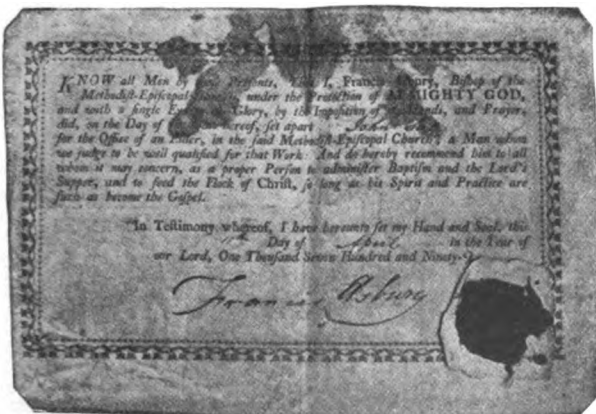 KNOW all Men by Presents, I, Francis Asbury, Bishop of the
Methodist-Episcopal Church, under the Protection of ALMIGHTY GOD,
and with a single Glory, by the Imposition of Hands, and Prayer,
did, on the Day of hereof, set apart John
for the Office of an Elder, in the said Methodist-Episcopal Church, a Man whom
we judge to be well qualified for that Work: And do hereby recommend him to all
whom it may concern, as a proper Person to administer Baptism and the Lord's
Supper, and to feed the Flock of Christ, so long as his Spirit and Practice are
such as become the Gospel.
In Testimony whereof, I have hereunto set my Hand and Seal, this
Day of April in the Year of
our Lord, One Thousand Seven Hundred and Ninety-
Francis Asbury